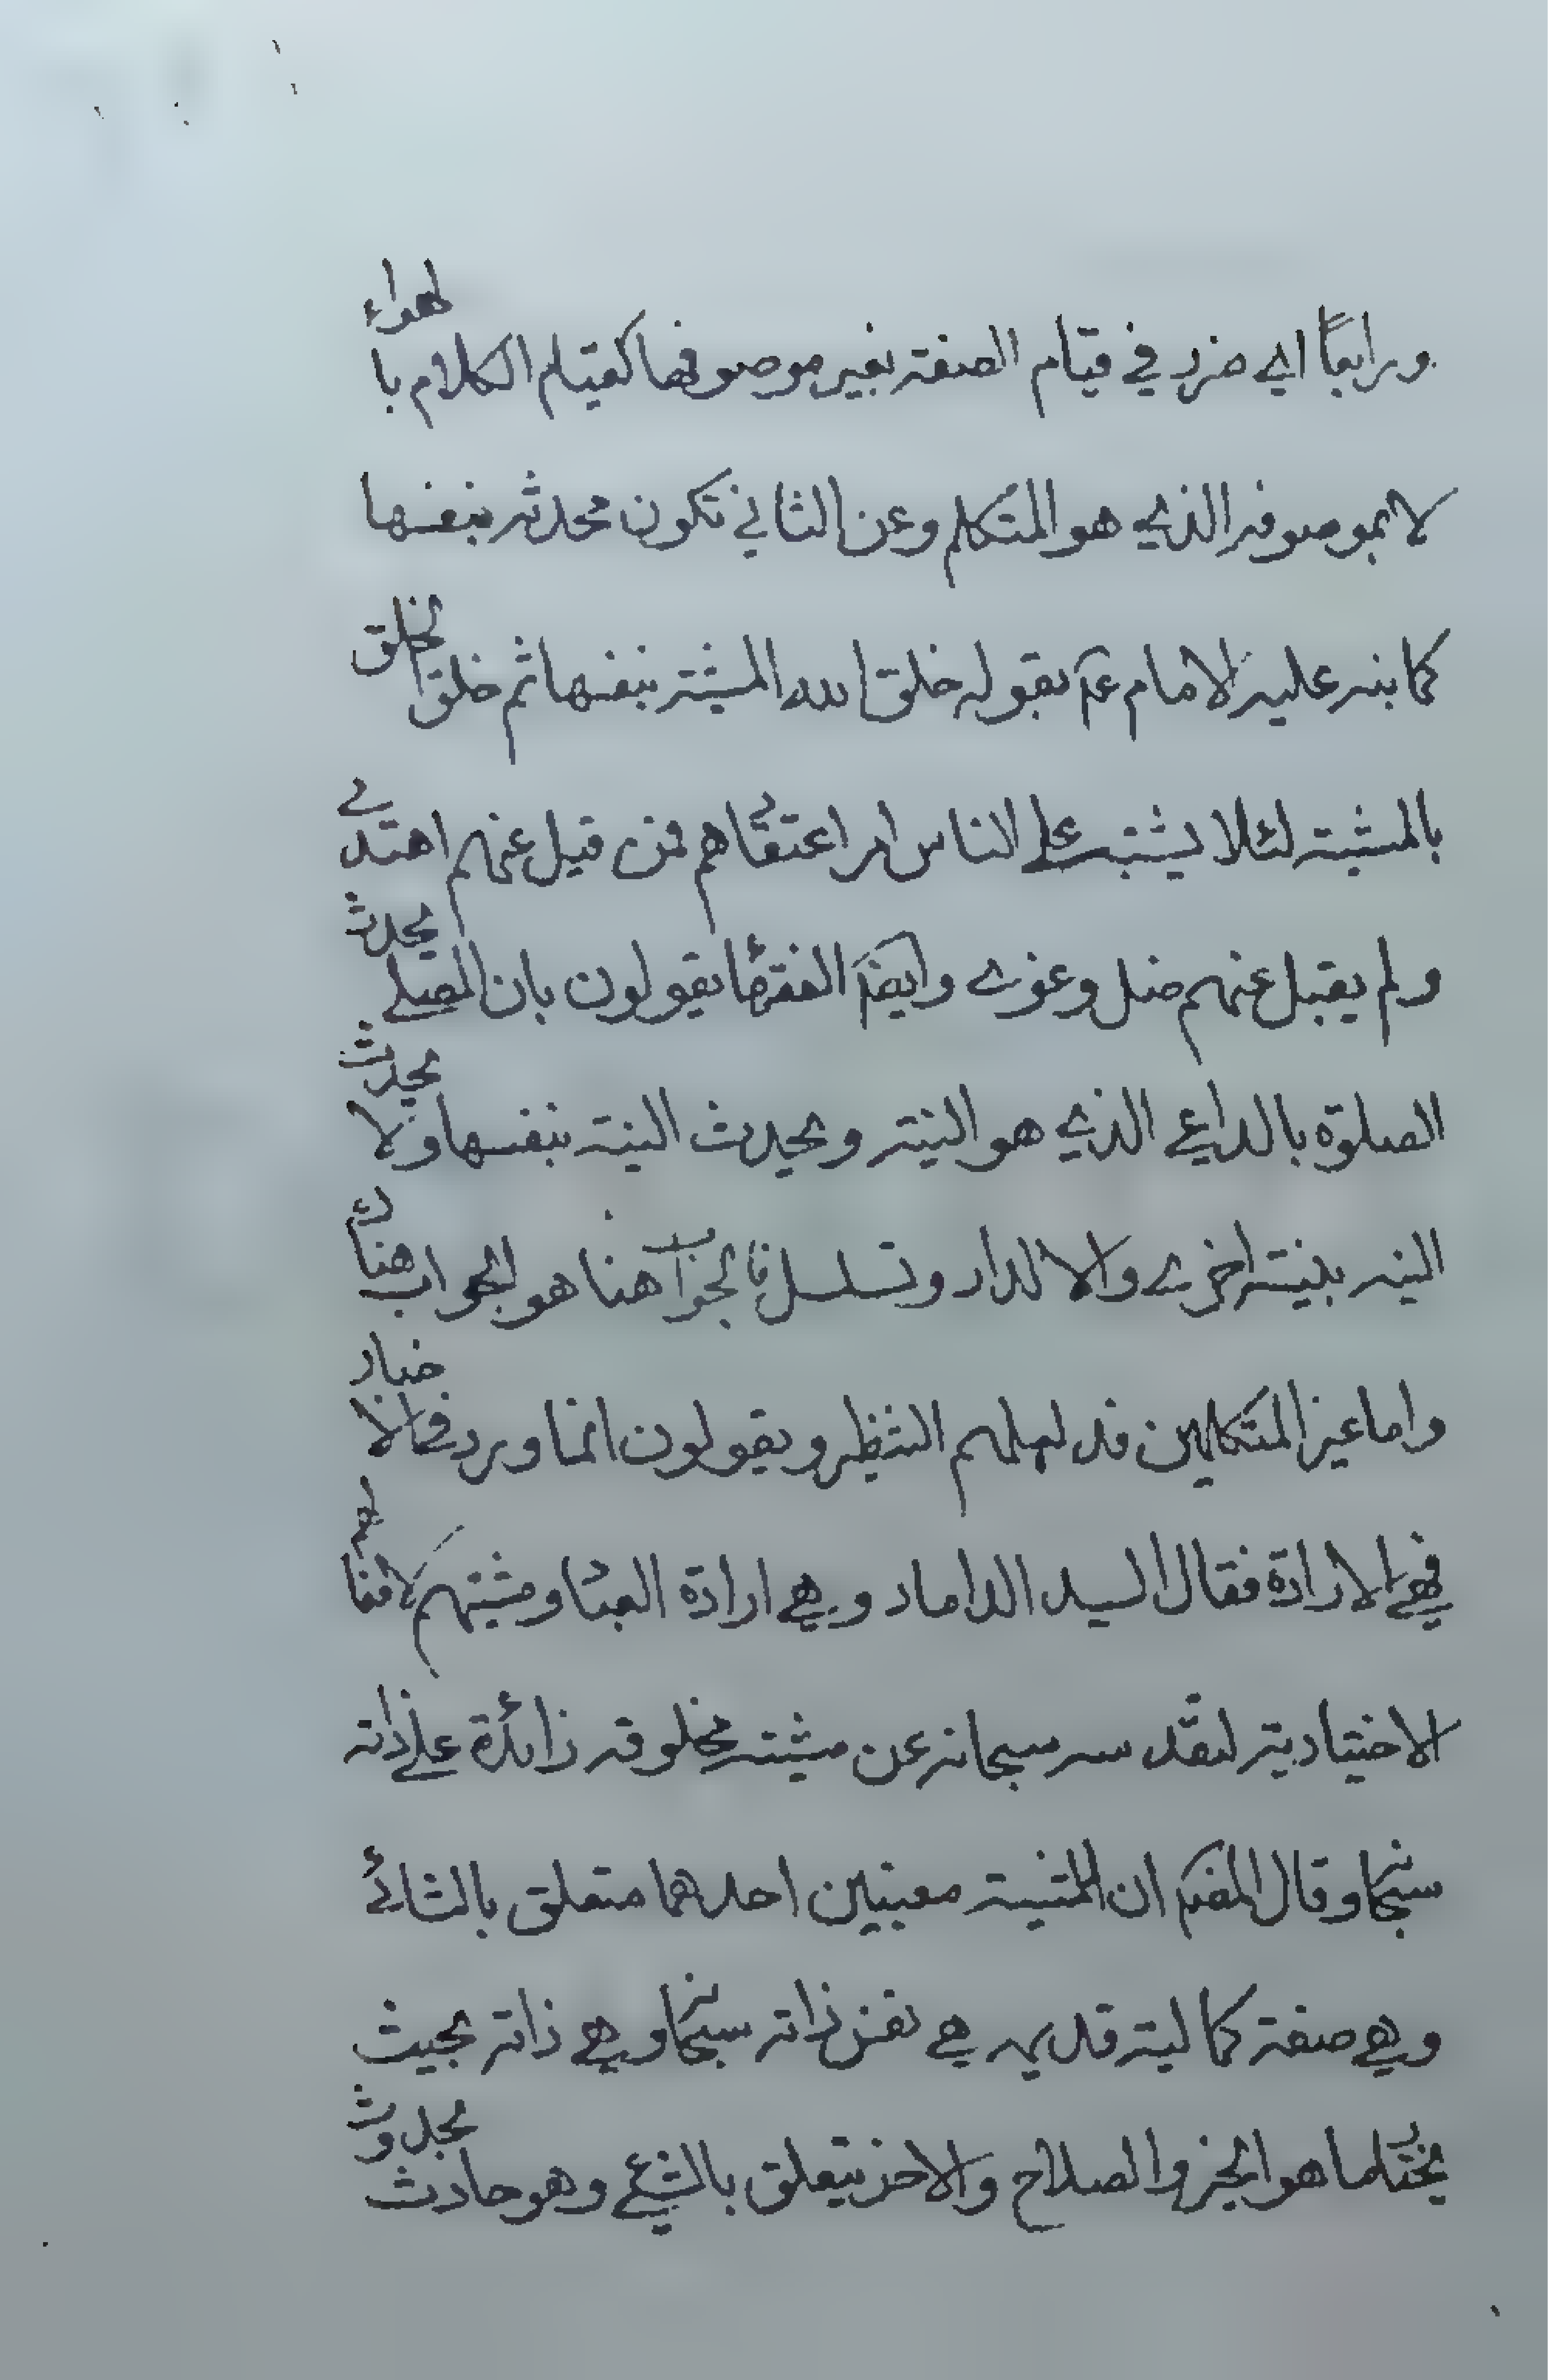 ورابعًا اي ضرر في قيام الصفة بغير موصوفها كقيام الكلام بالهواء
لا بموصوفه الذي هو المتكلم وعن الثاني تكون محدثه بنفسها
كما نبه عليه الامام عم بقوله خلق الله المشية بنفسها ثم خلق الخلق
بالمشية لئلا يشتبه على الناس امر اعتقادهم فمن قبل عنهم اهتدى
ولم يقبل عنهم ضل وغوى وايضا الفقهاء يقولون بان المصلي يحدث
الصلوة بالداعي الذي هو النية ويحدث النية بنفسها ولا يحدث
النيه بنية اخرى والا لدار وتسلسل فالجواب هنا هو الجواب هناك
واما غير المتكلمين فد لهم النظر ويقولون انما ورد في الاخبار
فهي الارادة فقال السيد الداماد وهي ارادة العباد ومشيتهم لافعالهم
الاختيارية لتقدسه سبحانه عن مشية مخلوقه زائدة على ذاته
سبحانه وقال ان للمشية معنيين احدهما متعلق بالشائي
وهي صفة كمالية قديمه هي نفس ذاته سبحانه وهي ذاته بحيث
يختار ما هو الخير والصلاح والاخر يتعلق بالشيء وهو حادث بحدوث